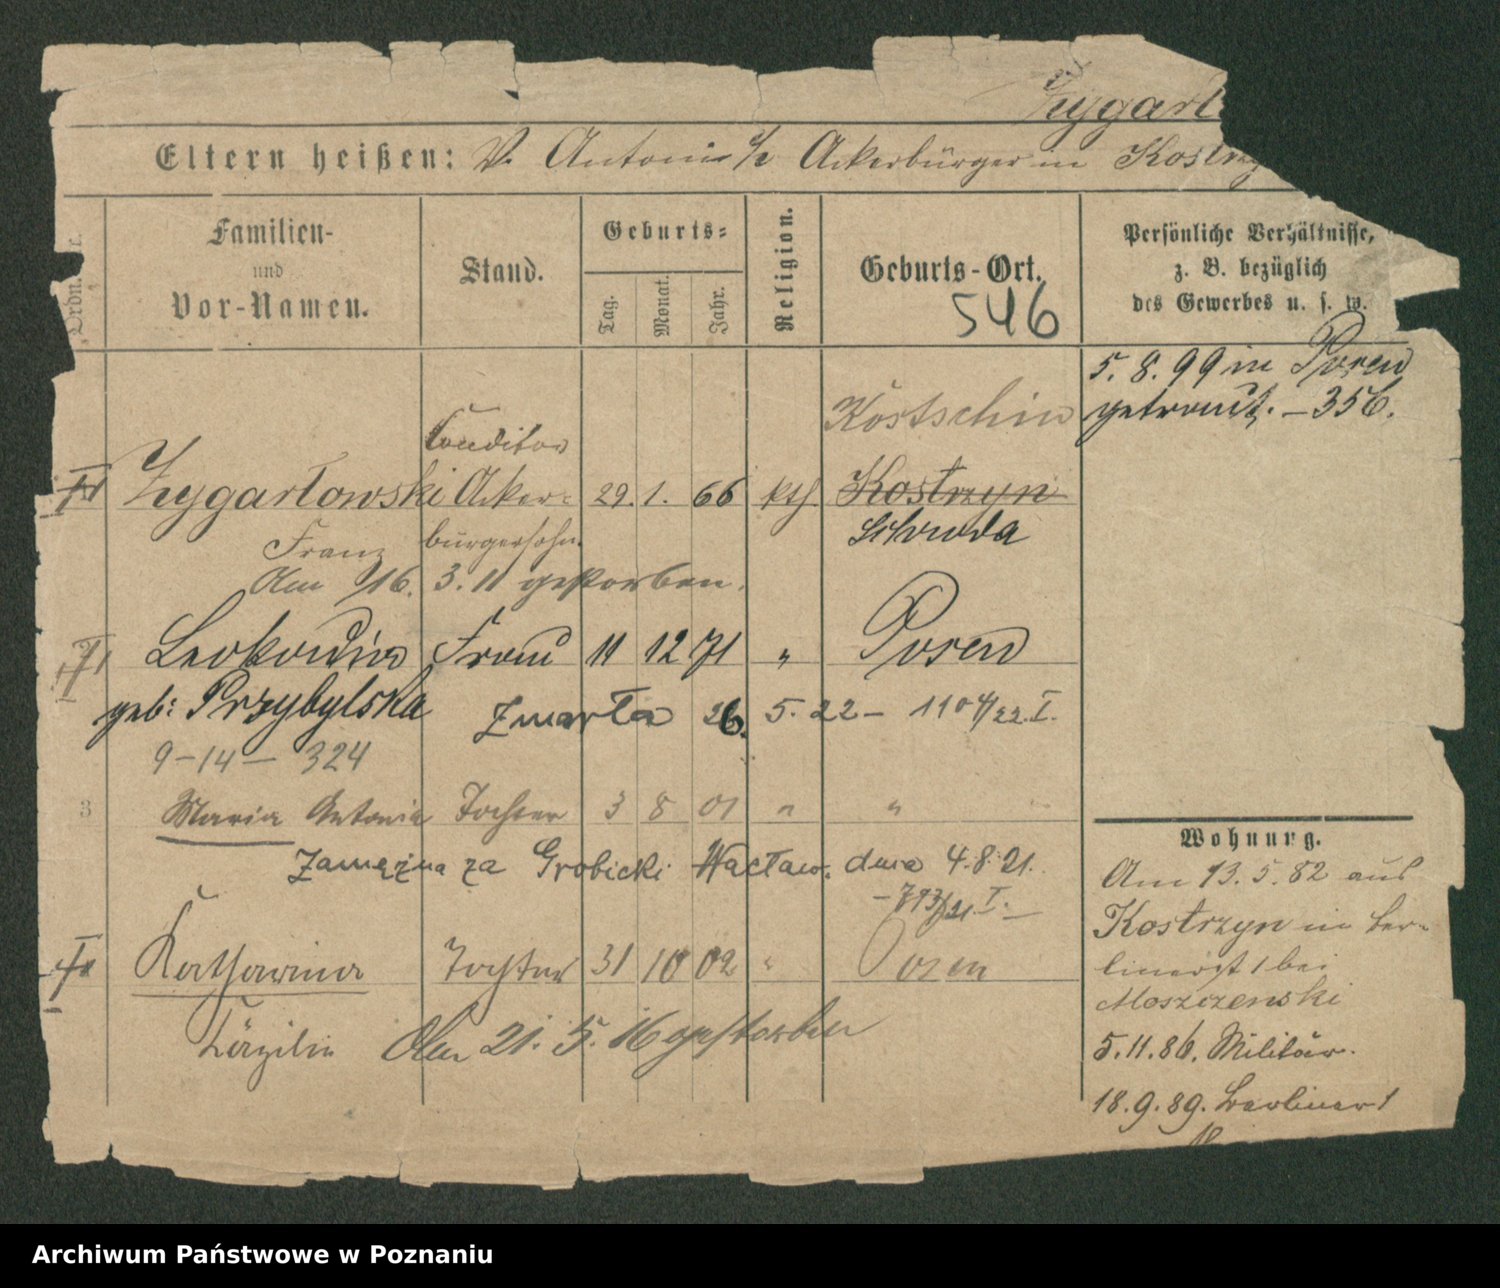 Zygart
Eltern heißen: V. Antoni Ackerbürger in Kostrzy
Ordn. Nr.
Familien-
und
Vor-Namen.
Stand.
Geburts-
Tag.
Monat.
Jahr.
Religion.
Geburts-Ort.
546
Persönliche Verhältnisse,
z. B. bezüglich
des Gewerbes u. s. w.
5. 8. 99 in Posen
getraut. - 356.
Kostschin
Conditor
Zygartowski Acker- 29. 1. 66 kth. Kostrzyn
Schroda
Franz bürgersohn.
Am 16. 3. 11 gestorben.
Leokardia Frau 11 12 71 " Posen
geb: Przybylska
Zmarła 26. 5. 22 - 1104/22. I.
9-14- 324
3 Maria Antonia Tochter 3 8 01 " "
Zamężna za Grobicki Wacław. dnia 4.8.21.
- 793/21 I. -
Katharina Tochter 31 10 02 " Posen
Cäzilie Am 21. 5. 16 gestorben
Wohnung.
Am 13. 5. 82 aus
Kostrzyn in Ber-
linerst 1 bei
Moszczenski
5. 11. 86. Militär.
18. 9. 89. Berliner 1
Archiwum Państwowe w Poznaniu